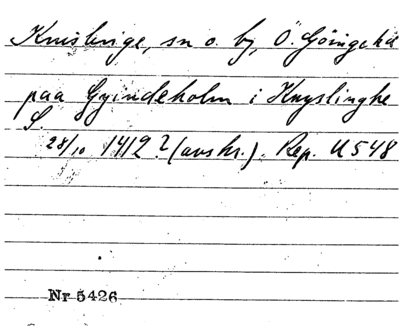 Knislinge, sn o. by, Ö. Göinge hd
paa Gyindeholm i Knyslinghe
S.
28/10 1412? (avskr.). Rep. U 548
Nr 5426